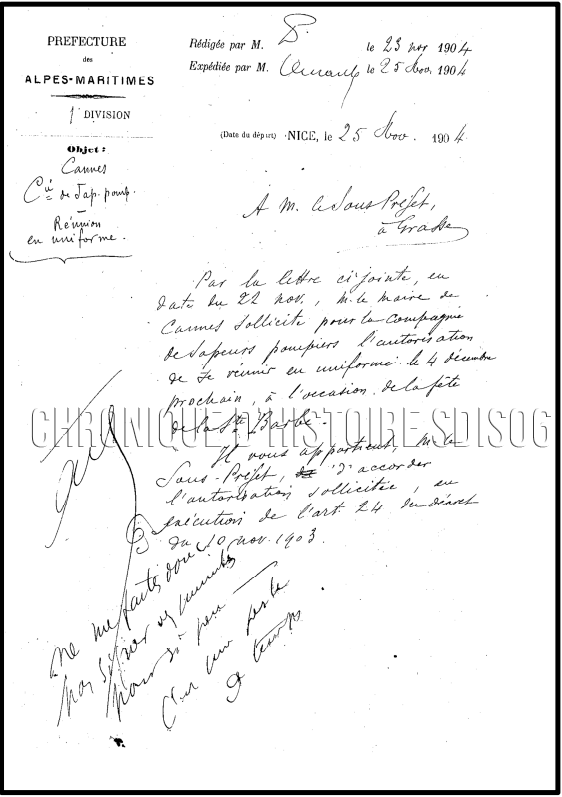 PREFECTURE
des
ALPES-MARITIMES
1e DIVISION
Objet:
Cannes
Cie de Sap. pomp.
Réunion
en uniforme.
Rédigée par M. le 23 nov 1904
Expédiée par M. le 25 Nov. 1904
(Date du départ) NICE, le 25 Nov. 1904.
A M. le Sous Préfet,
à Grasse
Par la lettre ci-jointe, en
date du 22 nov., M. le maire de
Cannes sollicite pour la compagnie
de Sapeurs pompiers l'autorisation
de se réunir en uniforme le 4 décembre
prochain, à l'occasion de la fête
de la Ste Barbe.
CHRONIQUE D'HISTOIRE SDIS06
Il vous appartient, M. le
Sous-Préfet, d'accorder
l'autorisation sollicitée, en
exécution de l'art. 24 du décret
du 10 nov. 1903.
Ne me faites donc
pas signer des minutes
pour si peu —
C'est une perte
de temps